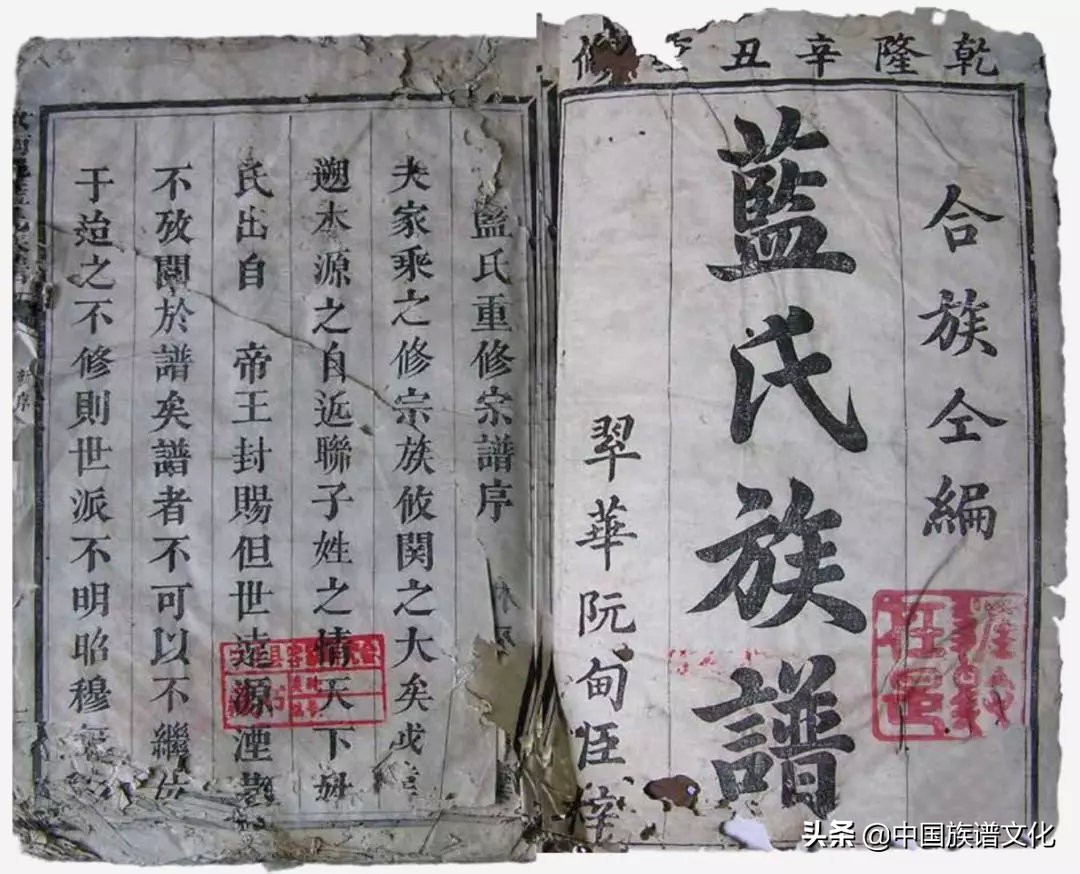 乾隆辛丑
合族仝編
藍氏族譜
翠華阮甸
藍氏重修宗譜序
夫家乘之修宗族攸関之大矣或
遡本源之自近聯子姓之情天下姓
氏出自 帝王封賜但世遠源湮
不攷關於譜矣譜者不可以不繼
于造之不修則世派不明昭穆
頭条 @中国族谱文化